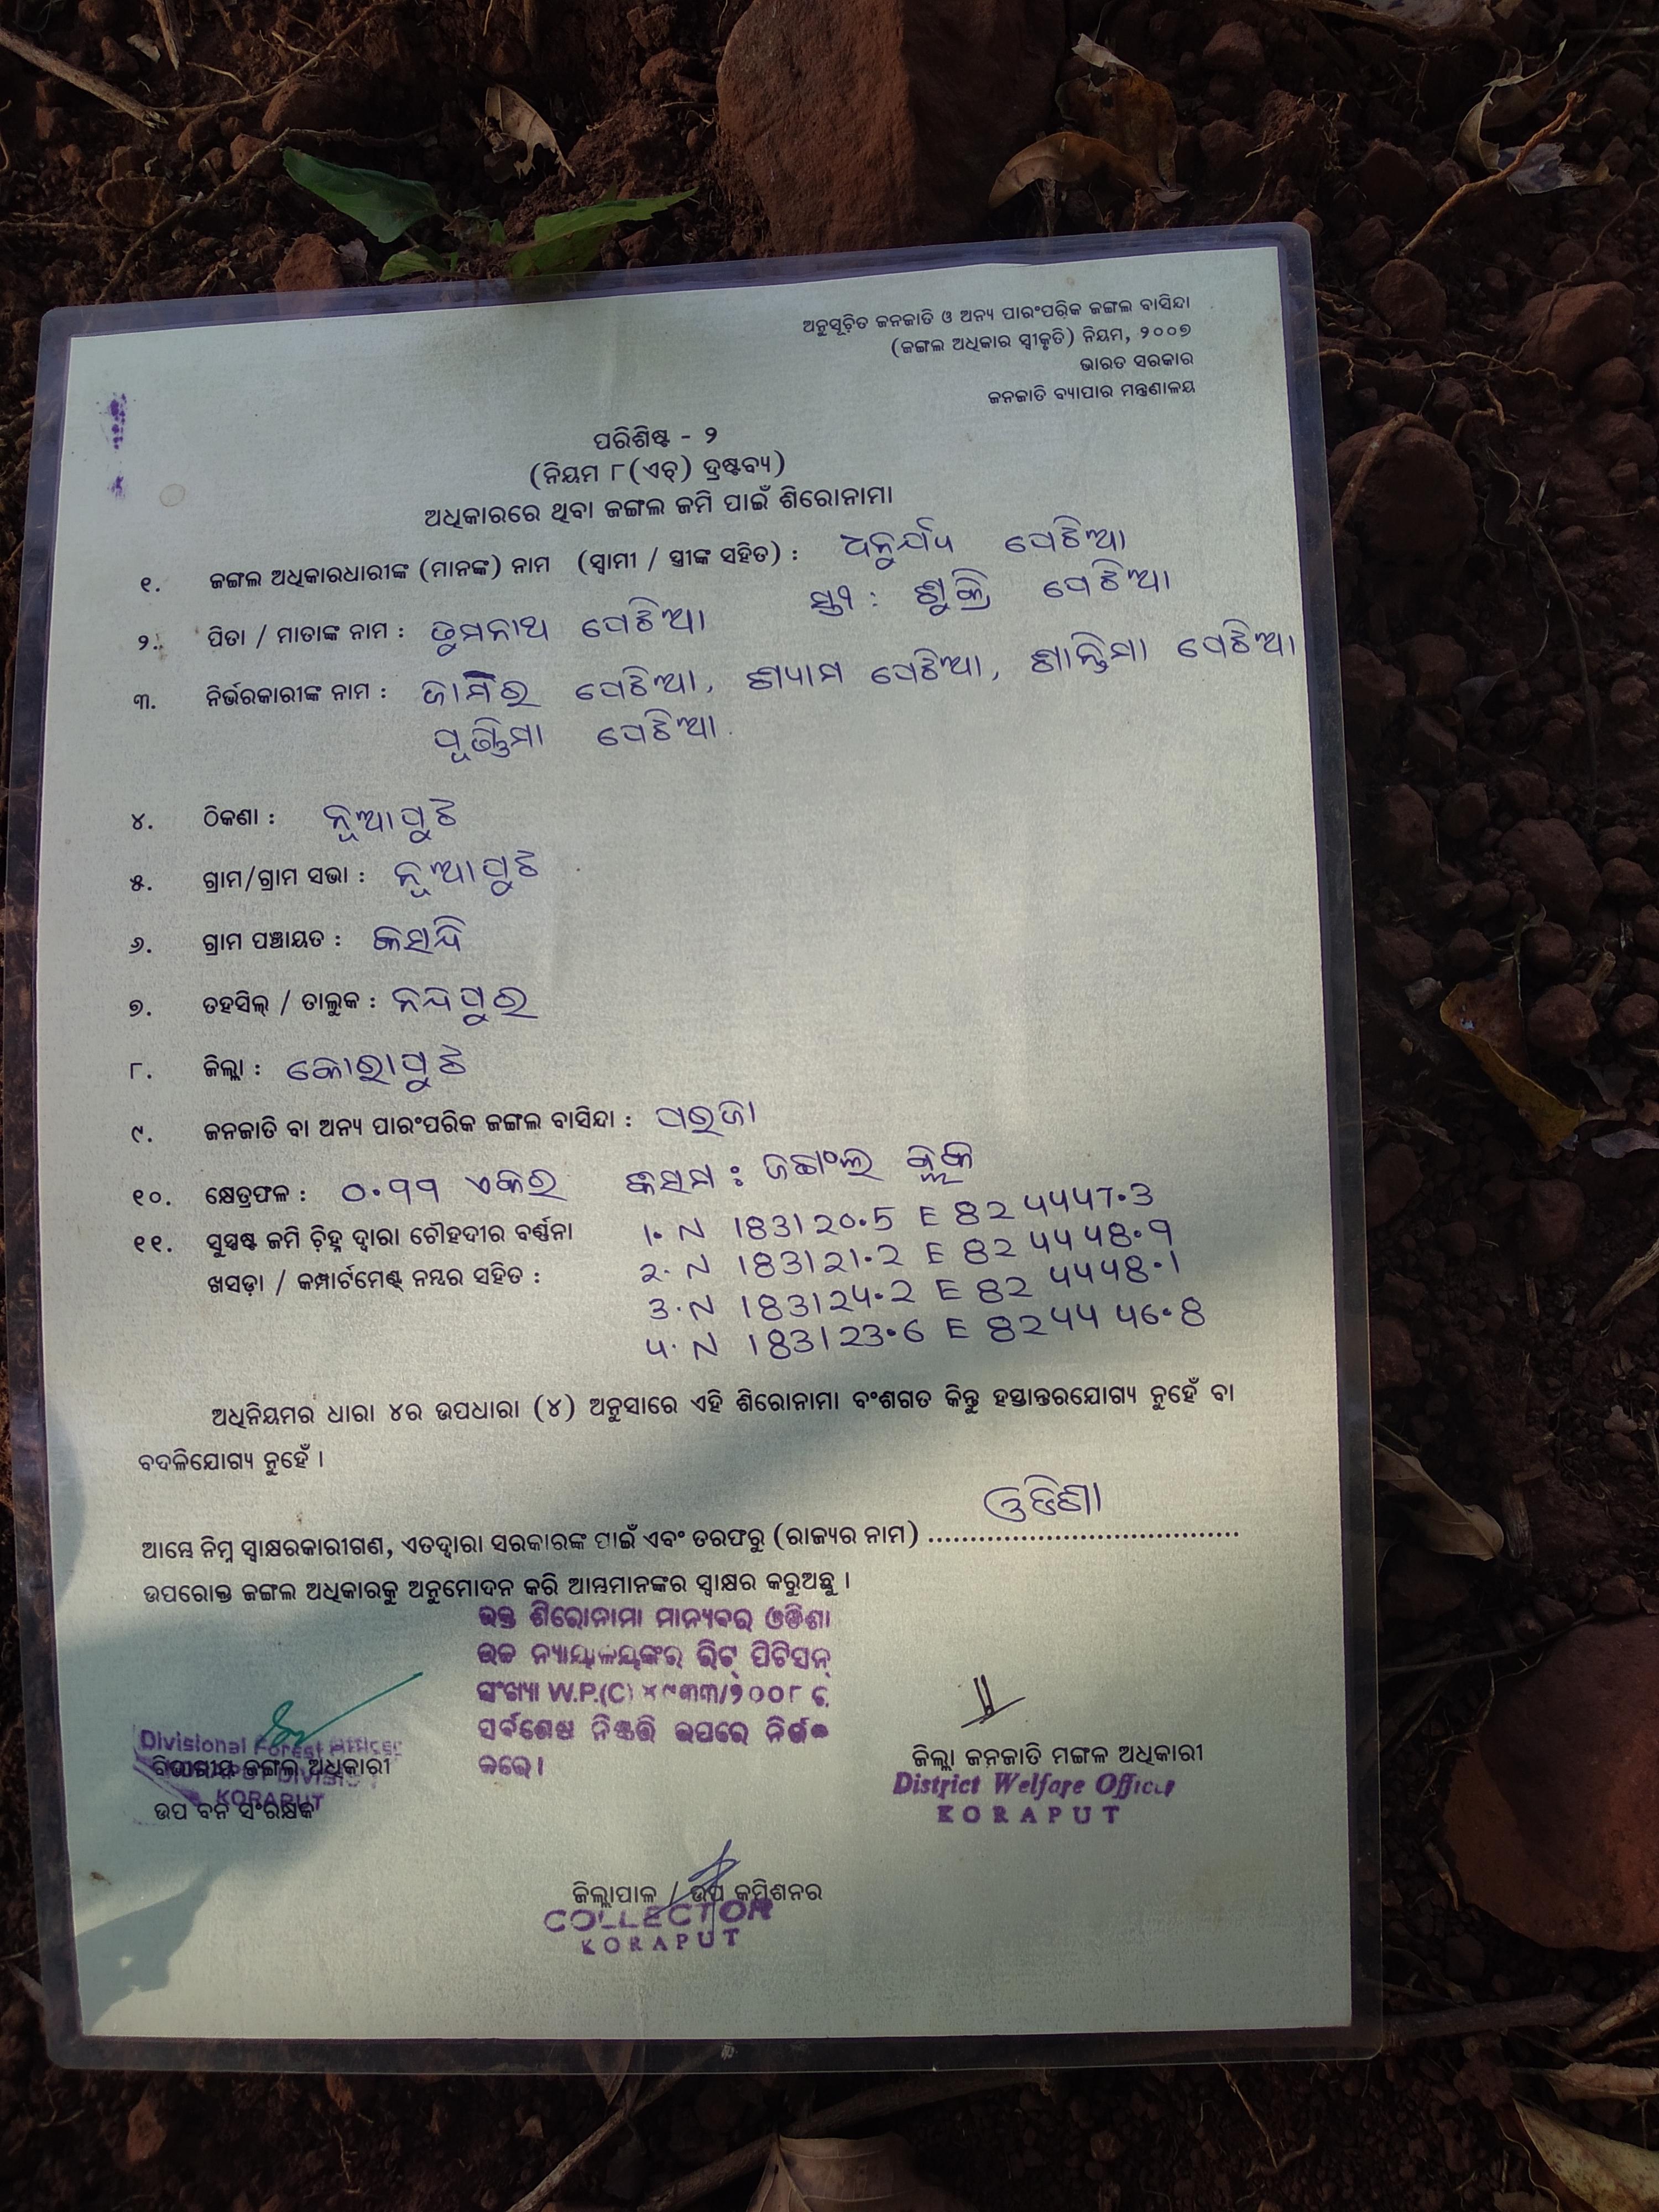 ଅନୁସୂଚିତ ଜନଜାତି ଓ ଅନ୍ୟ ପାରଂପରିକ ଜଙ୍ଗଲ ବାସିନ୍ଦା
(ଜଙ୍ଗଲ ଅଧିକାର ସ୍ୱୀକୃତି) ନିୟମ, ୨୦୦୭
ଭାରତ ସରକାର
ଜନଜାତି ବ୍ୟାପାର ମନ୍ତ୍ରଣାଳୟ
ପରିଶିଷ୍ଟ - ୨
(ନିୟମ ୮(ଏଚ୍) ଦ୍ରଷ୍ଟବ୍ୟ)
ଅଧିକାରରେ ଥିବା ଜଙ୍ଗଲ ଜମି ପାଇଁ ଶିରୋନାମା
୧. ଜଙ୍ଗଲ ଅଧିକାରଧାରୀଙ୍କ (ମାନଙ୍କ) ନାମ (ସ୍ୱାମୀ / ସ୍ତ୍ରୀଙ୍କ ସହିତ) : ଧନୁର୍ଯ୍ୟ ପେଟିଆ
ସ୍ତ୍ରୀ : ଶୁକ୍ରି ପେଟିଆ
୨. ପିତା / ମାତାଙ୍କ ନାମ : ଡୁମନାଥ ପେଟିଆ
୩. ନିର୍ଭରକାରୀଙ୍କ ନାମ : ପେଟିଆ, ଶ୍ୟାମ ପେଟିଆ, ଶାନ୍ତିମା ପେଟିଆ
ପୂର୍ଣ୍ଣିମା ପେଟିଆ
୪. ଠିକଣା : ନୂଆପୁଟ
୫. ଗ୍ରାମ/ଗ୍ରାମ ସଭା : ନୂଆପୁଟ
୬. ଗ୍ରାମ ପଞ୍ଚାୟତ : କସାନ୍ଦି
୭. ତହସିଲ୍ / ତାଲୁକ : ନନ୍ଦପୁର
୮. ଜିଲ୍ଲା : କୋରାପୁଟ
୯. ଜନଜାତି ବା ଅନ୍ୟ ପାରଂପରିକ ଜଙ୍ଗଲ ବାସିନ୍ଦା : ପରଜା
୧୦. କ୍ଷେତ୍ରଫଳ : ୦.୩୩ ଏକର କିସମ :
୧୧. ସୁସ୍ପଷ୍ଟ ଜମି ଚିହ୍ନ ଦ୍ୱାରା ଚୌହଦୀର ବର୍ଣ୍ଣନା
ଖସଡ଼ା / କମ୍ପାର୍ଟମେଣ୍ଟ୍ ନମ୍ବର ସହିତ :
1. N 183120.5 E 82 4447.3
2. N 183121.2 E 82 4448.9
3. N 183124.2 E 82 4448.1
4. N 183123.6 E 8244 46.8
ଅଧିନିୟମର ଧାରା ୪ର ଉପଧାରା (୪) ଅନୁସାରେ ଏହି ଶିରୋନାମା ବଂଶଗତ କିନ୍ତୁ ହସ୍ତାନ୍ତରଯୋଗ୍ୟ ନୁହେଁ ବା
ବଦଳିଯୋଗ୍ୟ ନୁହେଁ ।
ଓଡିଶା
ଆମ୍ଭେ ନିମ୍ନ ସ୍ୱାକ୍ଷରକାରୀଗଣ, ଏତଦ୍ୱାରା ସରକାରଙ୍କ ପାଇଁ ଏବଂ ତରଫରୁ (ରାଜ୍ୟର ନାମ) ....................................
ଉପରୋକ୍ତ ଜଙ୍ଗଲ ଅଧିକାରକୁ ଅନୁମୋଦନ କରି ଆମ୍ଭମାନଙ୍କର ସ୍ୱାକ୍ଷର କରୁଅଛୁ ।
ଉକ୍ତ ଶିରୋନାମା ମାନ୍ୟବର ଓଡିଶା
ଉଚ୍ଚ ନ୍ୟାୟାଳୟଙ୍କର ରିଟ୍ ପିଟିସନ୍
ସଂଖ୍ୟା W.P.(C) ୪୯୩୩/୨୦୦୮ ର
ସର୍ବଶେଷ ନିଷ୍ପତ୍ତି ଉପରେ ନିର୍ଭର
କରେ।
Divisional Forest Officer
ବିଭାଗୀୟ ଜଙ୍ଗଲ ଅଧିକାରୀ
KORAPUT
ଉପ ବନ ସଂରକ୍ଷକ
ଜିଲ୍ଲା ଜନଜାତି ମଙ୍ଗଳ ଅଧିକାରୀ
District Welfare Officer
KORAPUT
ଜିଲ୍ଲାପାଳ / ଉପ କମିଶନର
COLLECTOR
KORAPUT